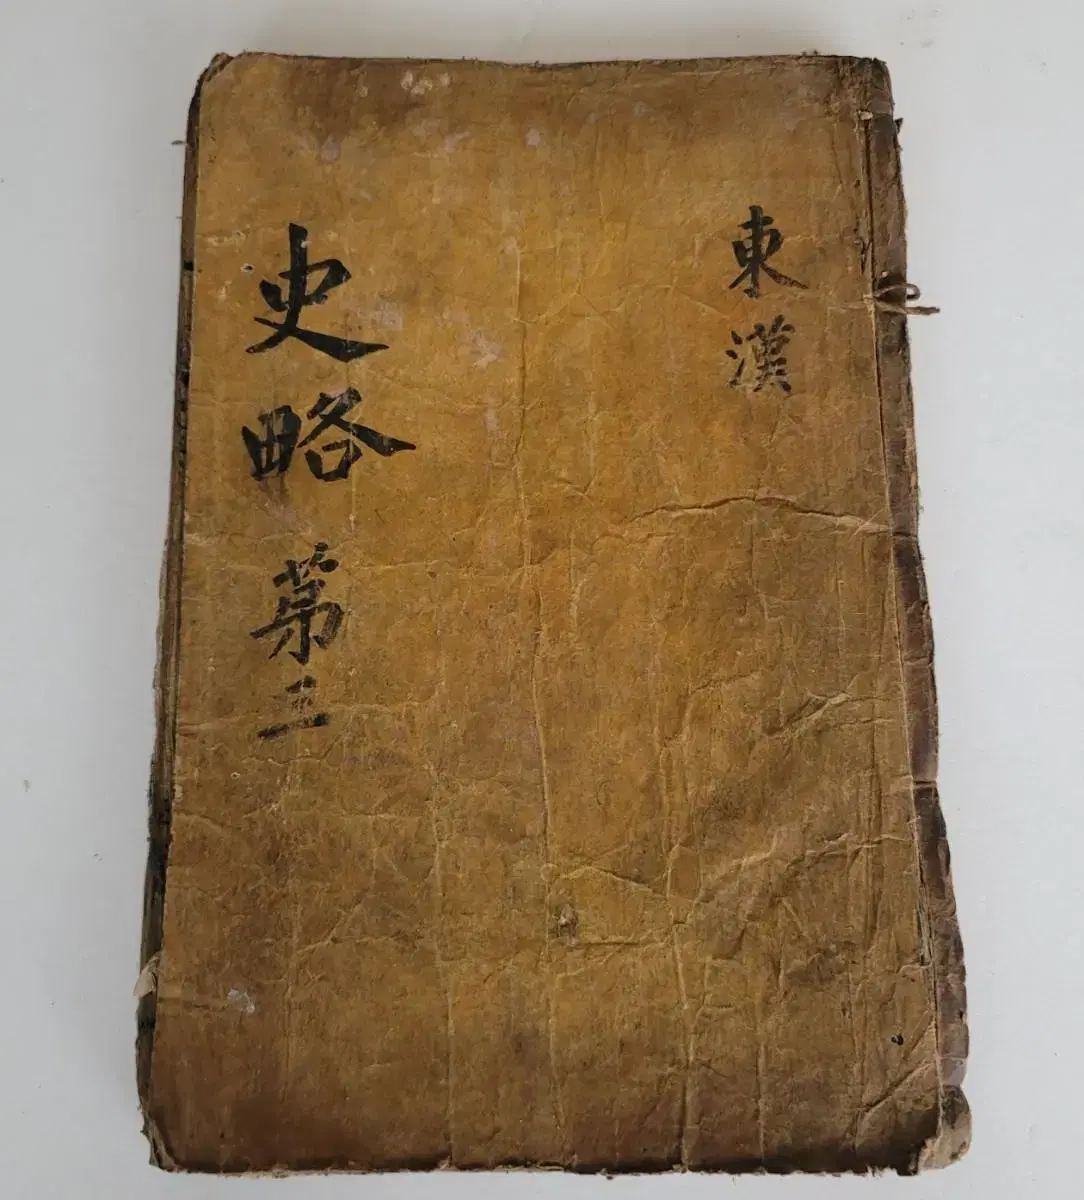 東漢
史略 苐三